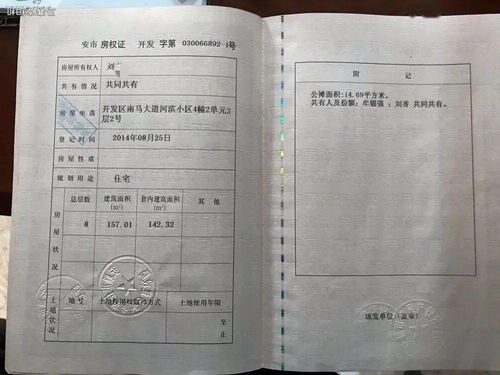 安市 房权证 开发 字第 030066892-1号
房屋所有权人 刘
共有情况 共同共有
房屋坐落 开发区南马大道河滨小区4幢2单元3
层2号
登记时间 2014年08月25日
房屋性质
规划用途 住宅
房屋状况
总层数 建筑面积 套内建筑面积 其他
(m²) (m²)
8 157.01 142.32
土地状况
地号 土地使用权取得方式 土地使用年限
至
止
附记
公摊面积:14.69平方米.
共有人及份额: 牟锦强 : 刘香 共同共有.
填发单位(盖章)